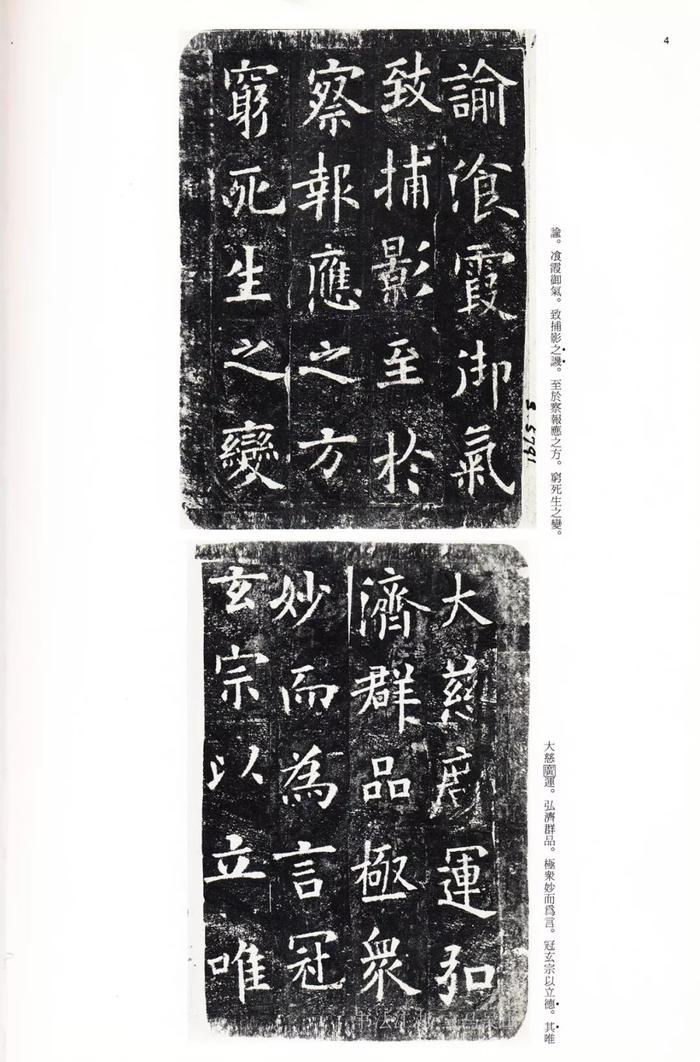 4
諭飡霞御氣
致捕影至於
察報應之方
窮死生之變
諭。飡霞御氣。致捕影之譏。至於察報應之方。窮死生之變。
大慈廣運弘
濟群品極衆
妙而為言冠
玄宗以立唯
大慈廣運。弘濟群品。極衆妙而爲言。冠玄宗以立德。其唯